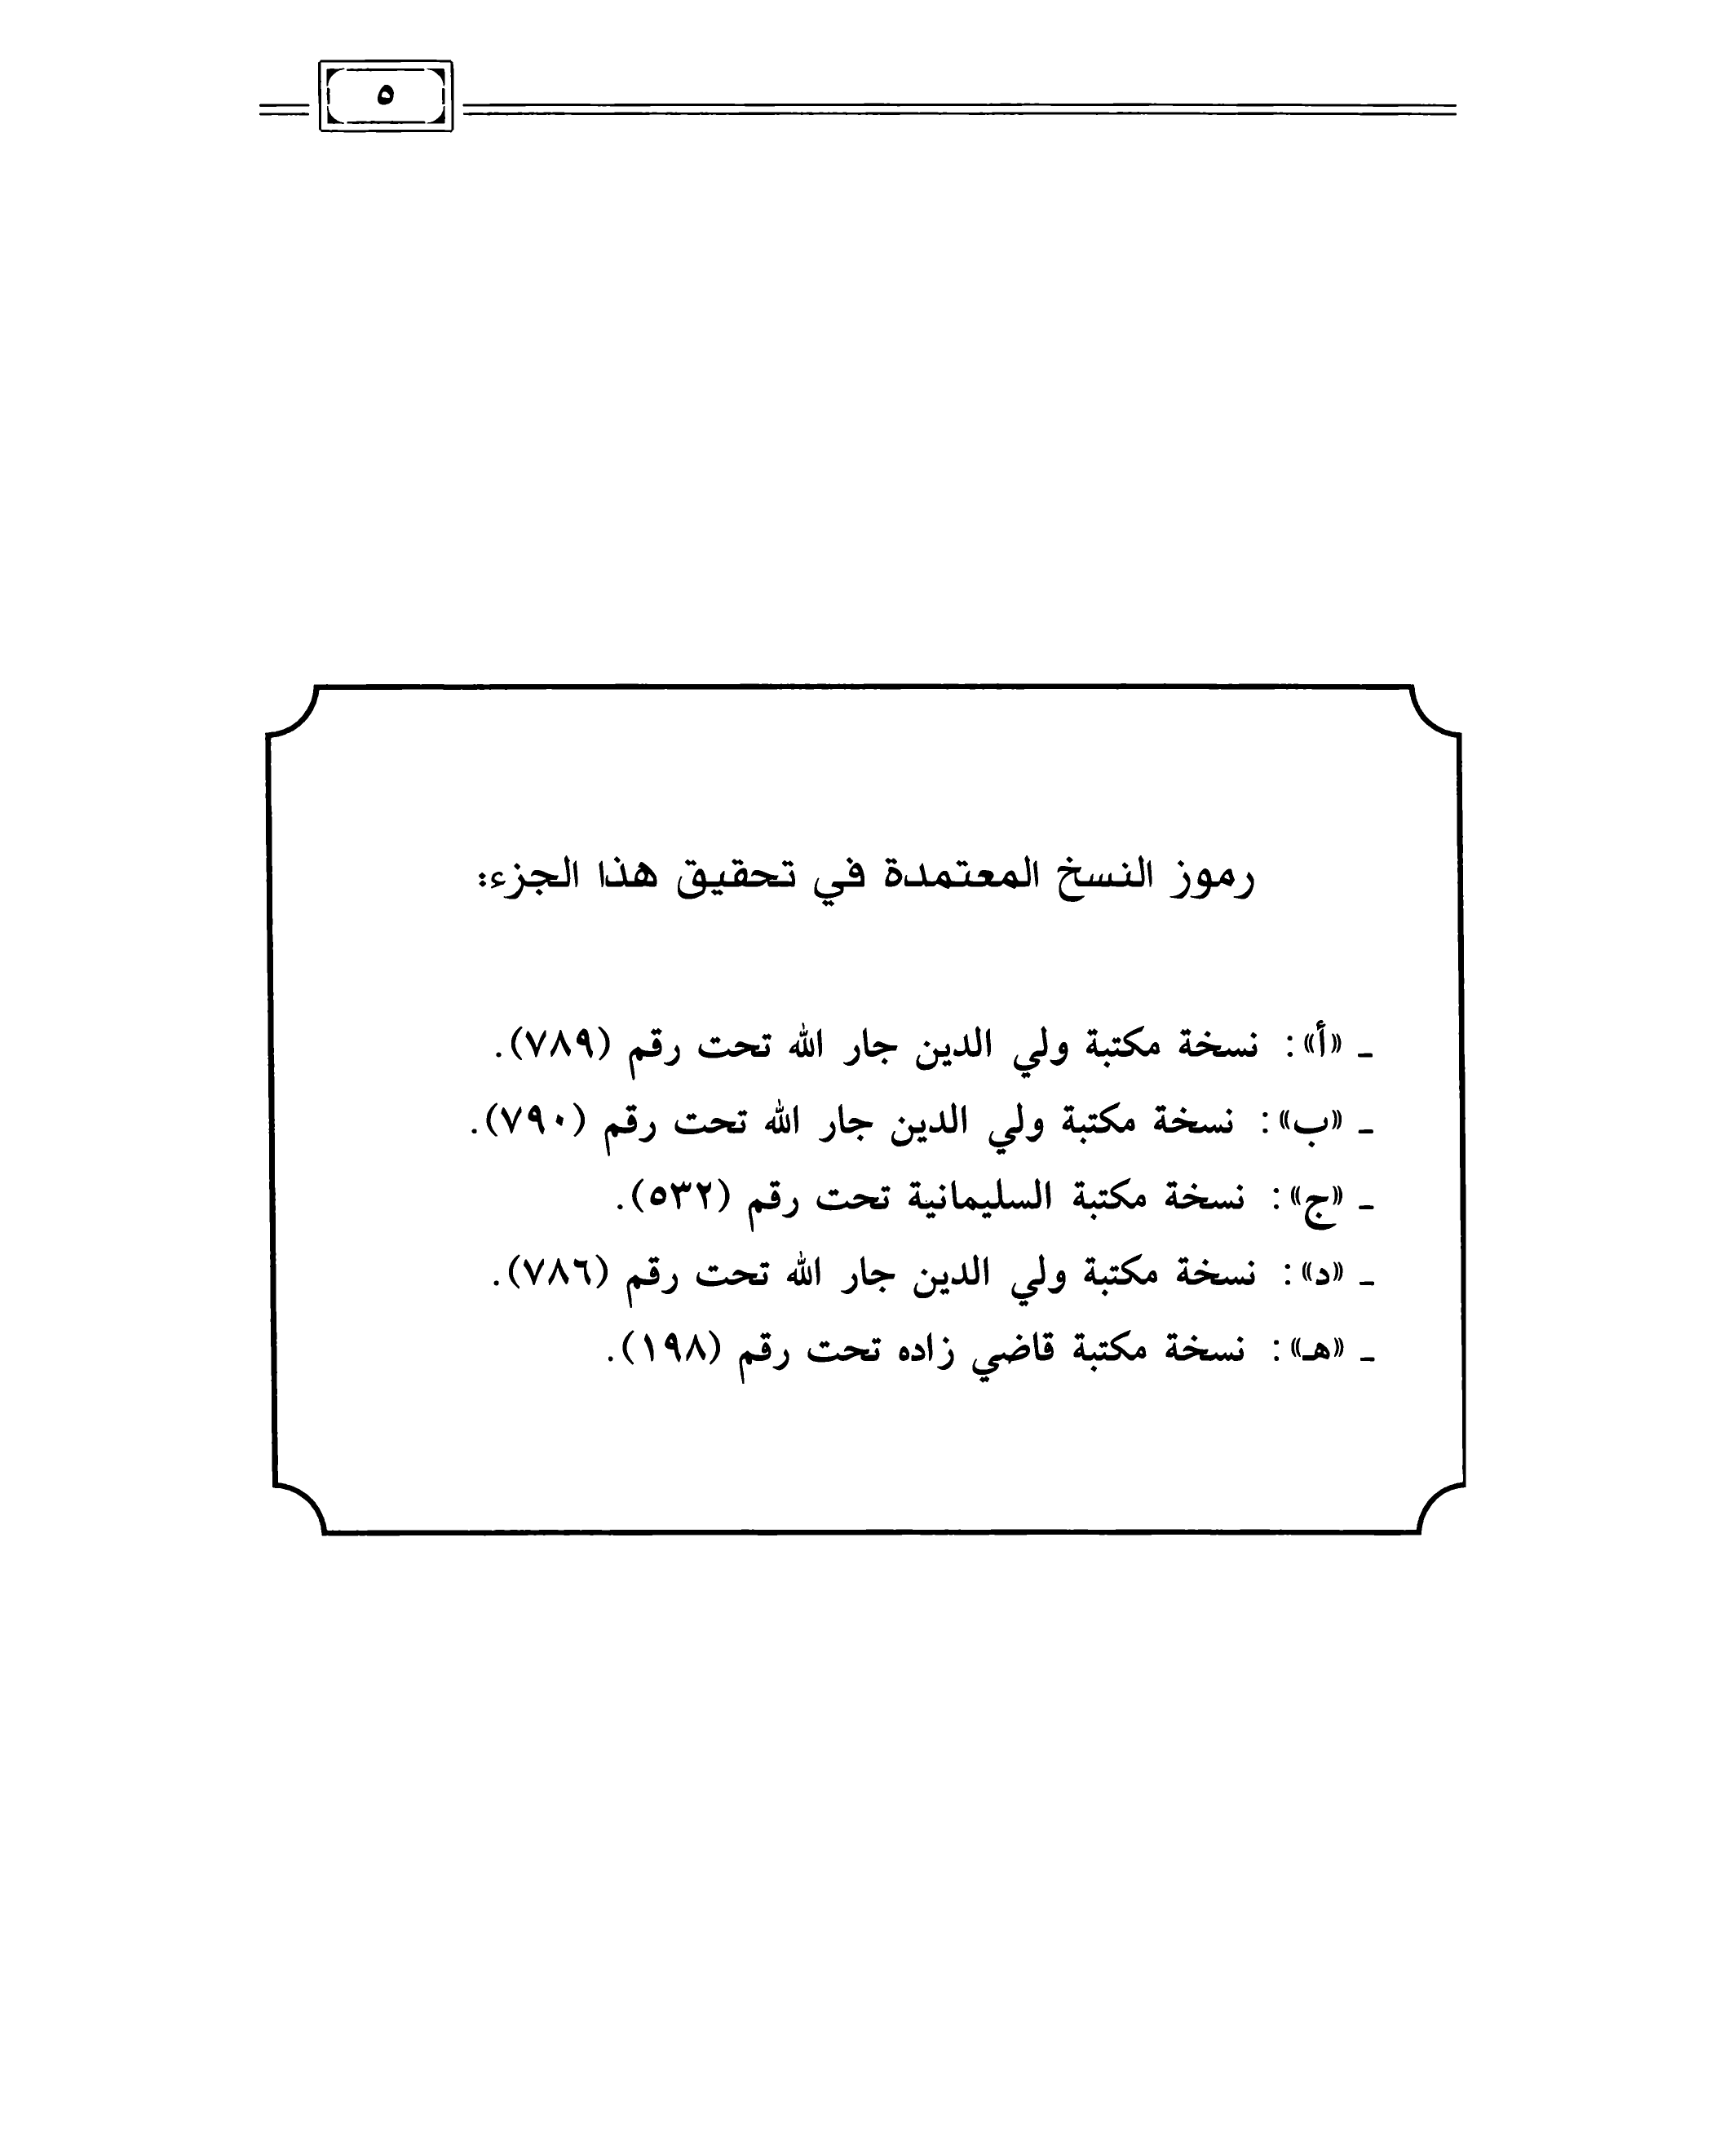 ٥
رموز النسخ المعتمدة في تحقيق هذا الجزء:
ـ «أ»: نسخة مكتبة ولي الدين جار الله تحت رقم (٧٨٩).
ـ «ب»: نسخة مكتبة ولي الدين جار الله تحت رقم (٧٩٠).
ـ «ج»: نسخة مكتبة السليمانية تحت رقم (٥٣٢).
ـ «د»: نسخة مكتبة ولي الدين جار الله تحت رقم (٧٨٦).
ـ «هـ»: نسخة مكتبة قاضي زاده تحت رقم (١٩٨).